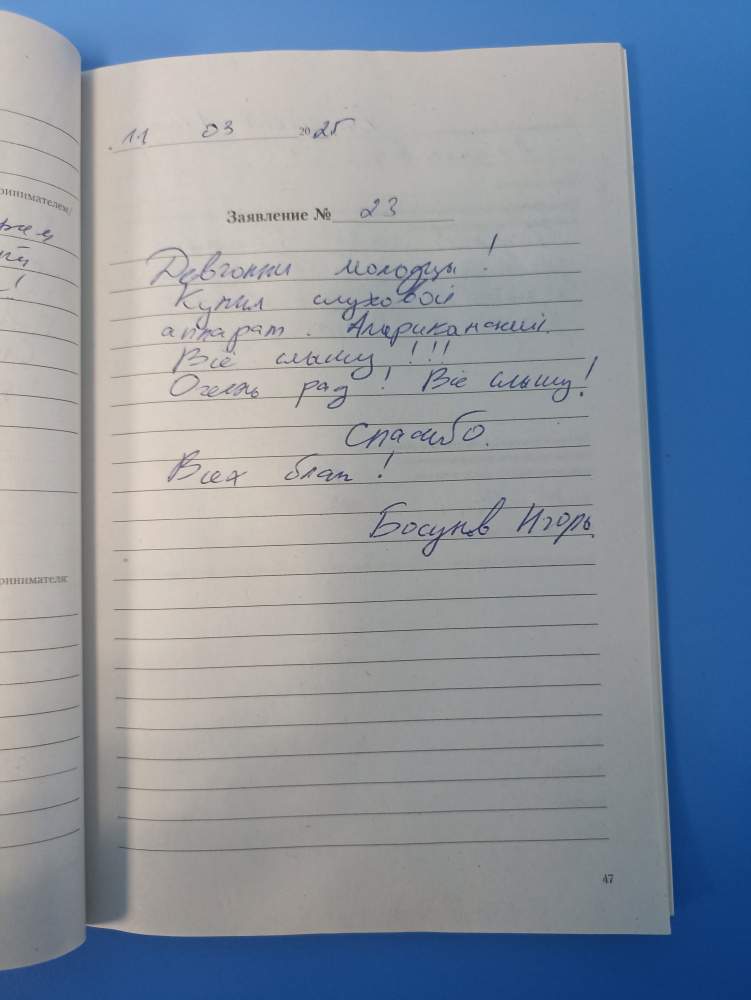 ринимателем/
!
ринимателя:
11 03 2025
Заявление № 23
Девчонки молодцы!
Купил слуховой
аппарат. Американский.
Всё слышу!!!
Очень рад! Всё слышу!
Спасибо.
Всех благ!
Босунов Игорь
47